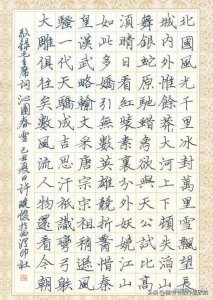 北國風光千里冰封萬里雪飄望長
城內外惟餘莽莽大河上下頓失滔滔山
舞銀蛇原馳蠟象欲與天公試比高
須晴日看紅裝素裹分外妖嬈江山
如此多嬌引無數英雄競折腰惜秦
皇漢武略輸文采唐宗宋祖稍遜風
騷一代天驕成吉思汗只識彎弓射
大雕俱往矣數風流人物還看今朝
敬錄毛主席詞沁園春雪己丑夏日許曉俊於西泠印社